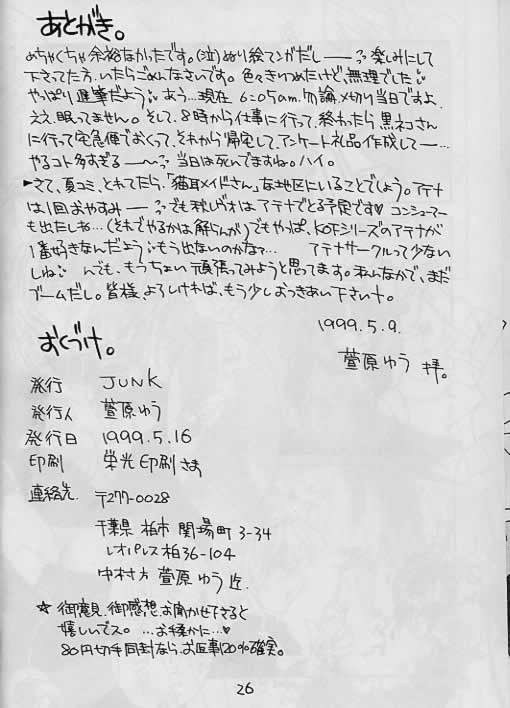 あとがき。
めちゃくちゃ余裕なかったです。(泣)ぬり絵マンガだし——楽しみにして
下さってた方、いたらごめんなさいです。色々きりつめたけど、無理でした
やっぱり遅筆だよう あう…現在 6:05am.勿論〆切り当日ですよ
ええ、眠ってません。そして、8時から仕事に行って、終わったら黒ネコさん
に行って宅急便でおくって、それから帰宅して、アンケート礼品作成して—…
やるコト多すぎる—〜 当日は死んでますね。ハイ。
►さて、夏コミ、とれてたら、「猫耳メイドさん」な地区にいることでしょう。アテナ
は1回おやすみ— でも秋レヴォはアテナでとる予定です♥ コンシューマー
も出たしね…(それでやるかは解らんが)でもやっぱ、KOFシリーズのアテナが
1番好きなんだよう もう出ないのかなァ… アテナサークルって少ない
しね んでも、もうちょい頑張ってみようと思ってます。私いなかで、まだ
ブームだし。皆様、よろしければ、もう少しおつきあい下さいナ。
1999.5.9.
萱原ゆう 拝。
おくづけ。
発行 JUNK
発行人 萱原ゆう
発行日 1999.5.16
印刷 栄光印刷さま
連絡先. 〒277-0028
千葉県 柏市 関場町 3-34
レオパレス柏36-104
中村方 萱原ゆう迄.
☆ 御意見、御感想、お聞かせ下さると
嬉しいでス。…お手柔かに…♥
80円切手同封なら、お返事120%確実。
26